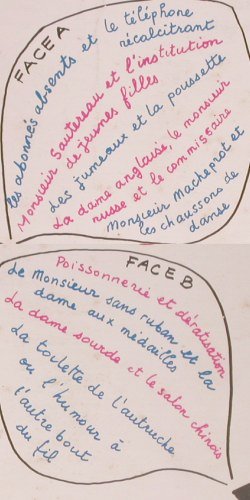 FACE A
les abonnés absents et le téléphone
récalcitrant
Monsieur Sautereau et l'institution
de jeunes filles
Les jumeaux et la poussette
La dame anglaise, le monsieur
russe et le commissaire
Monsieur Macheprot et
les chaussons de
danse
FACE B
Poissonnerie et dératisation
Le Monsieur sans ruban et la
dame aux médailles
La dame sourde et le salon chinois
La toilette de l'autruche
ou l'humour à
l'autre bout
du fil